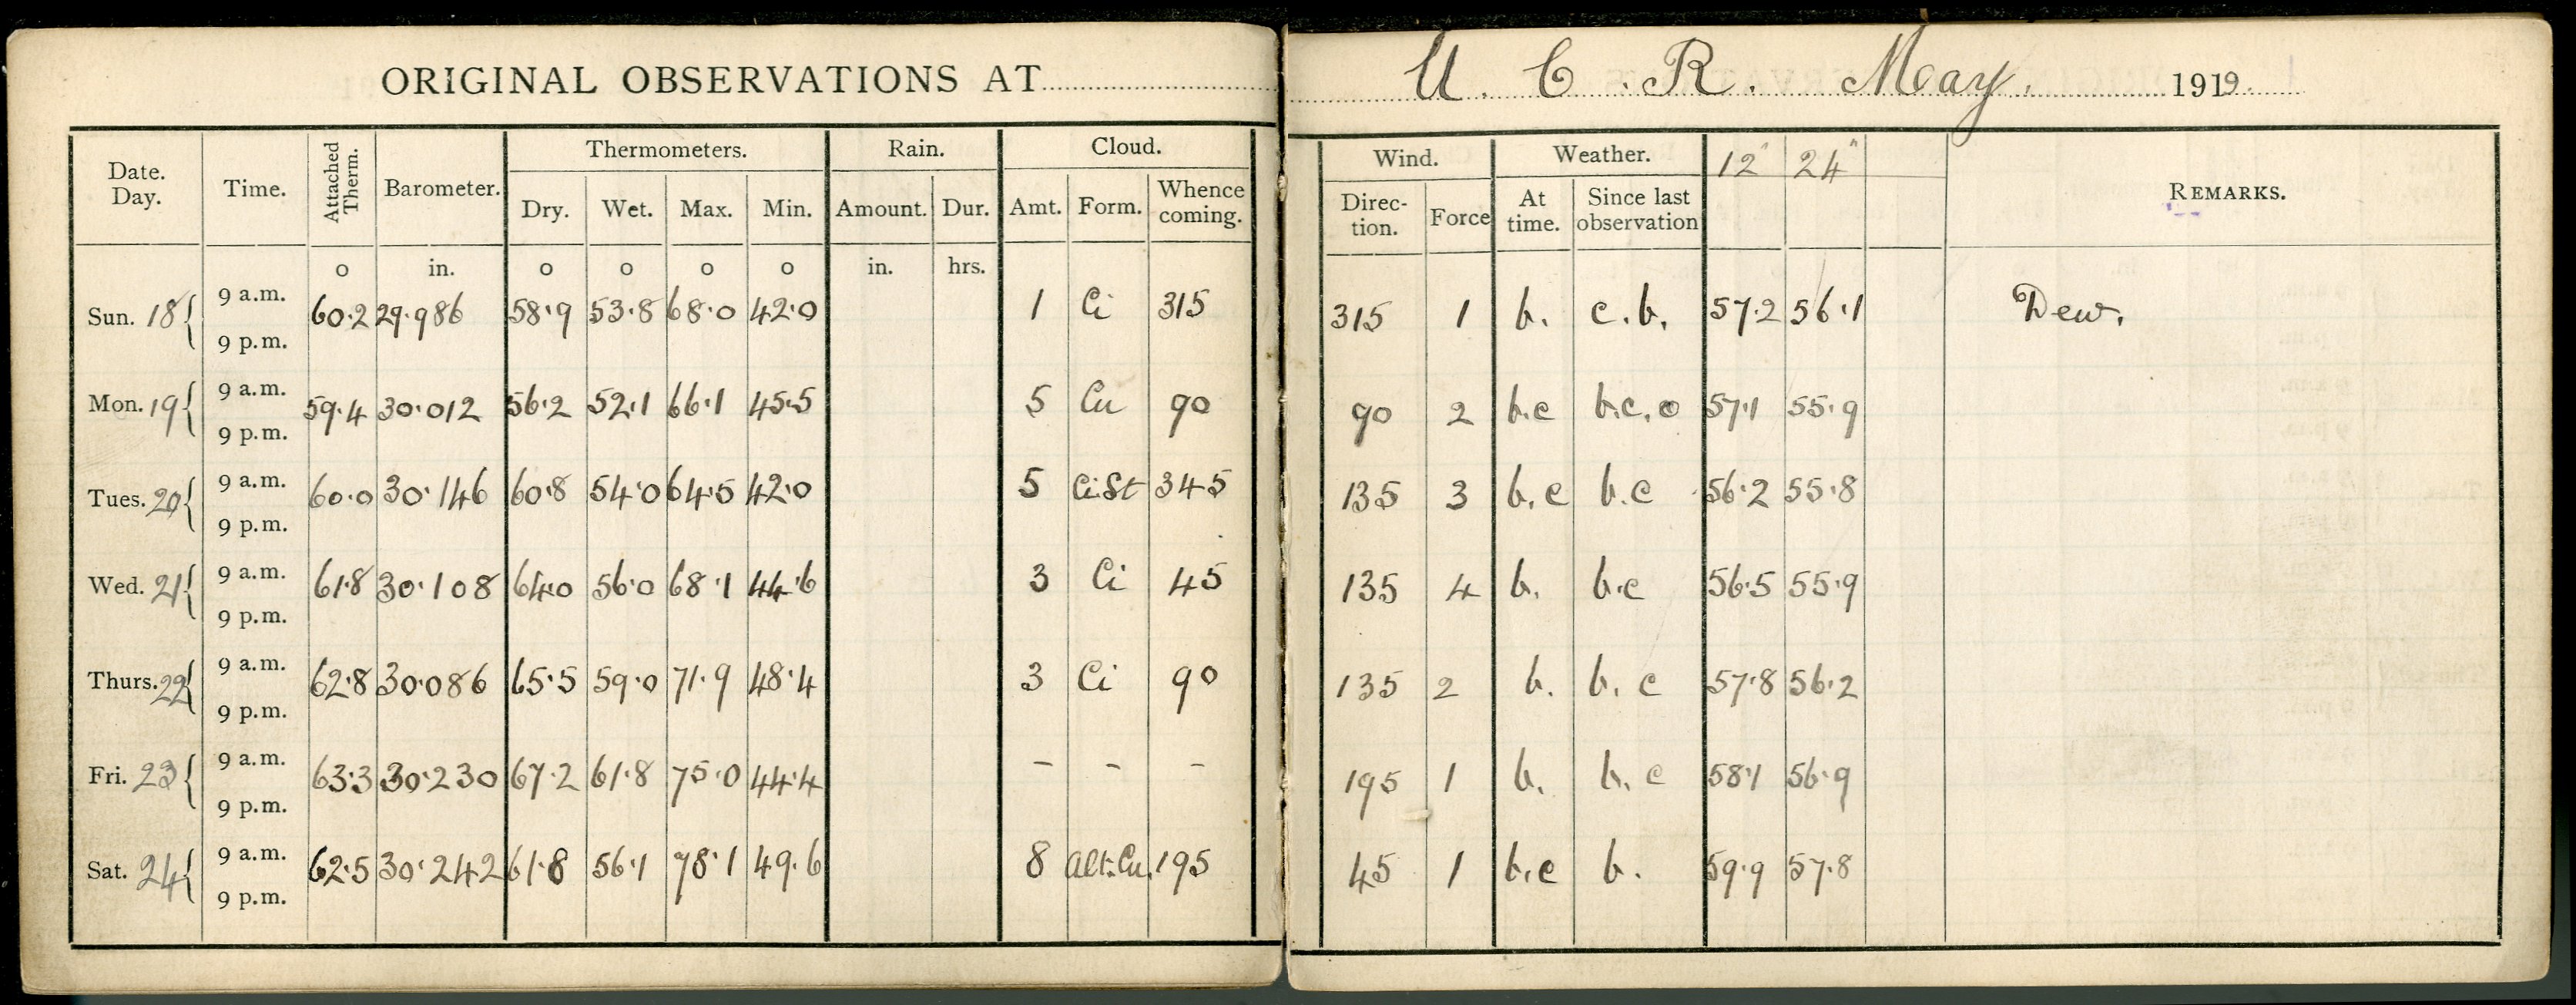 ORIGINAL OBSERVATIONS AT U. C. R. May. 1919.
Date. Day. Time. Attached Therm. Barometer. Thermometers. Rain. Cloud. Wind. Weather. 12" 24" REMARKS.
Dry. Wet. Max. Min. Amount. Dur. Amt. Form. Whence coming. Direc-tion. Force At time. Since last observation
o in. o o o o in. hrs.
Sun. 18 { 9 a.m. 60.2 29.986 58.9 53.8 68.0 42.0 1 Ci 315 315 1 b. c.b. 57.2 56.1 Dew.
9 p.m.
Mon. 19 { 9 a.m. 59.4 30.012 56.2 52.1 66.1 45.5 5 Cu 90 90 2 b.c b.c.o 57.1 55.9
9 p.m.
Tues. 20 { 9 a.m. 60.0 30.146 60.8 54.0 64.5 42.0 5 Ci.St 345 135 3 b.c b.c 56.2 55.8
9 p.m.
Wed. 21 { 9 a.m. 61.8 30.108 64.0 56.0 68.1 44.6 3 Ci 45 135 4 b. b.c 56.5 55.9
9 p.m.
Thurs. 22 { 9 a.m. 62.8 30.086 65.5 59.0 71.9 48.4 3 Ci 90 135 2 b. b. c 57.8 56.2
9 p.m.
Fri. 23 { 9 a.m. 63.3 30.230 67.2 61.8 75.0 44.4 - - - 195 1 b. b. c 58.1 56.9
9 p.m.
Sat. 24 { 9 a.m. 62.5 30.242 61.8 56.1 78.1 49.6 8 Alt.Cu. 195 45 1 b.c b. 59.9 57.8
9 p.m.